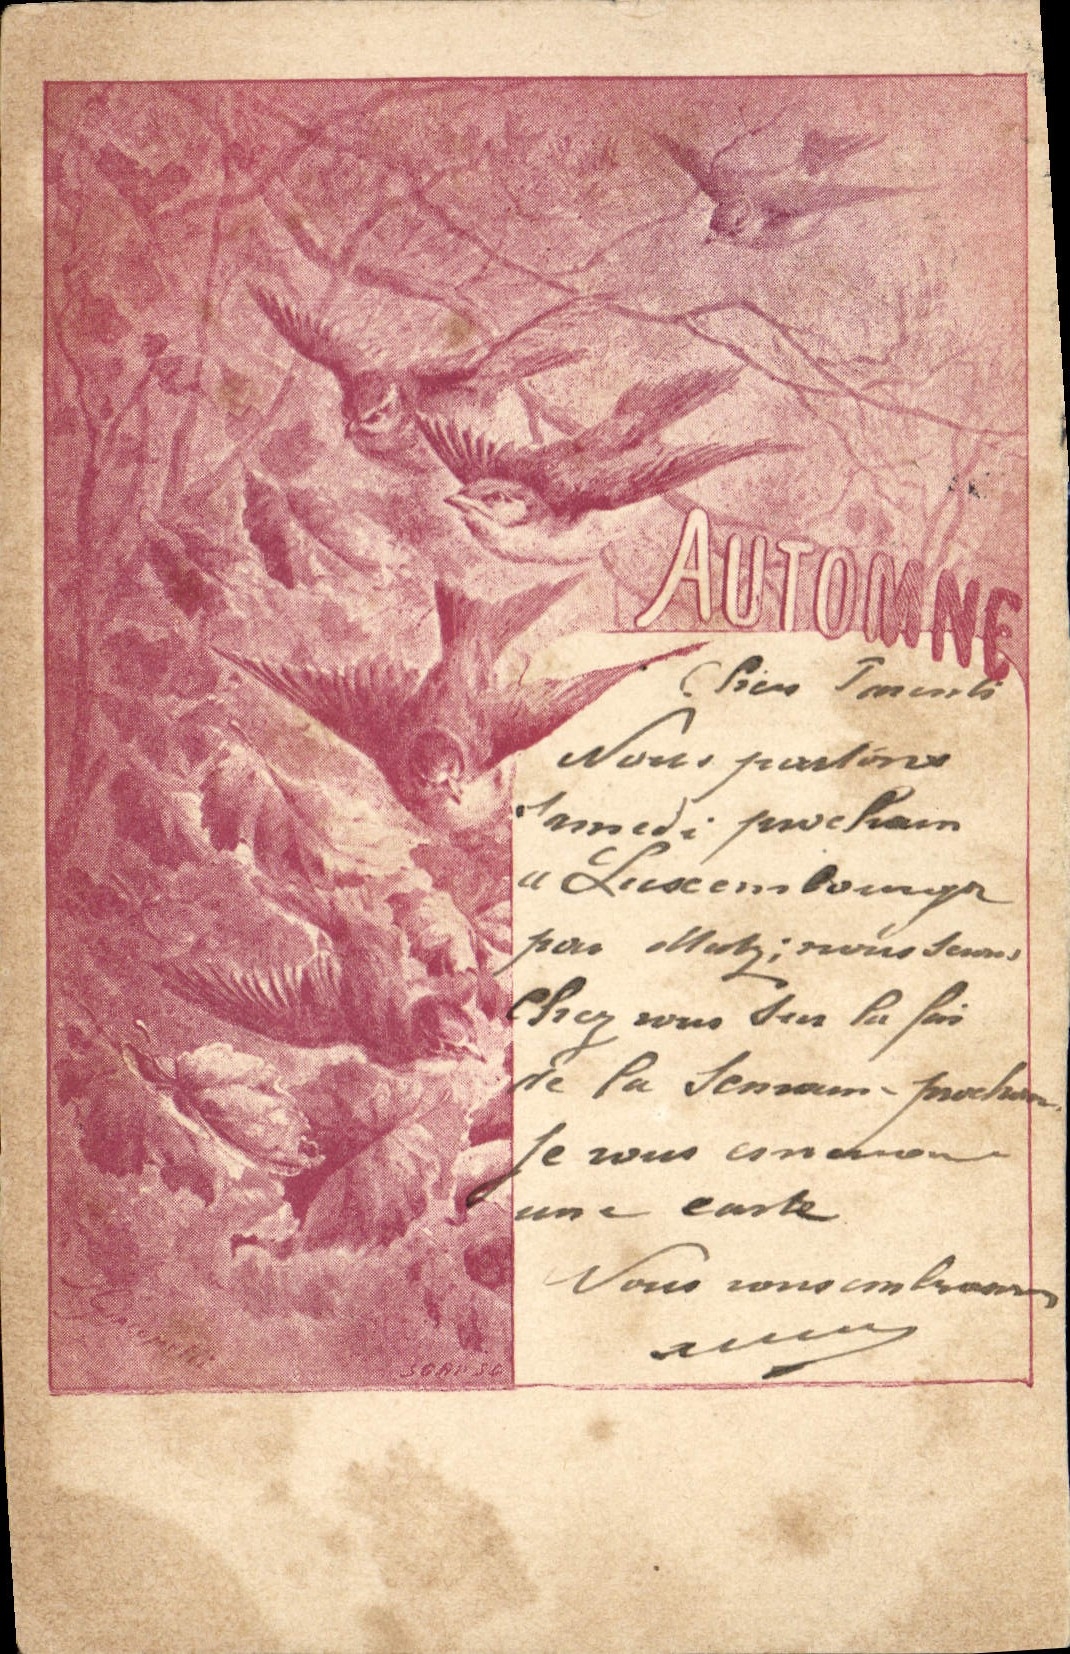 AUTOMNE
Chers Parents
Nous partons
Samedi prochain
a Luxembourg
par Metz; nous serons
Chez vous sur la fin
de la Semaine prochaine
Je vous enverrai
une carte
Nous vous embrassons
Giacomelli
SGAP SC